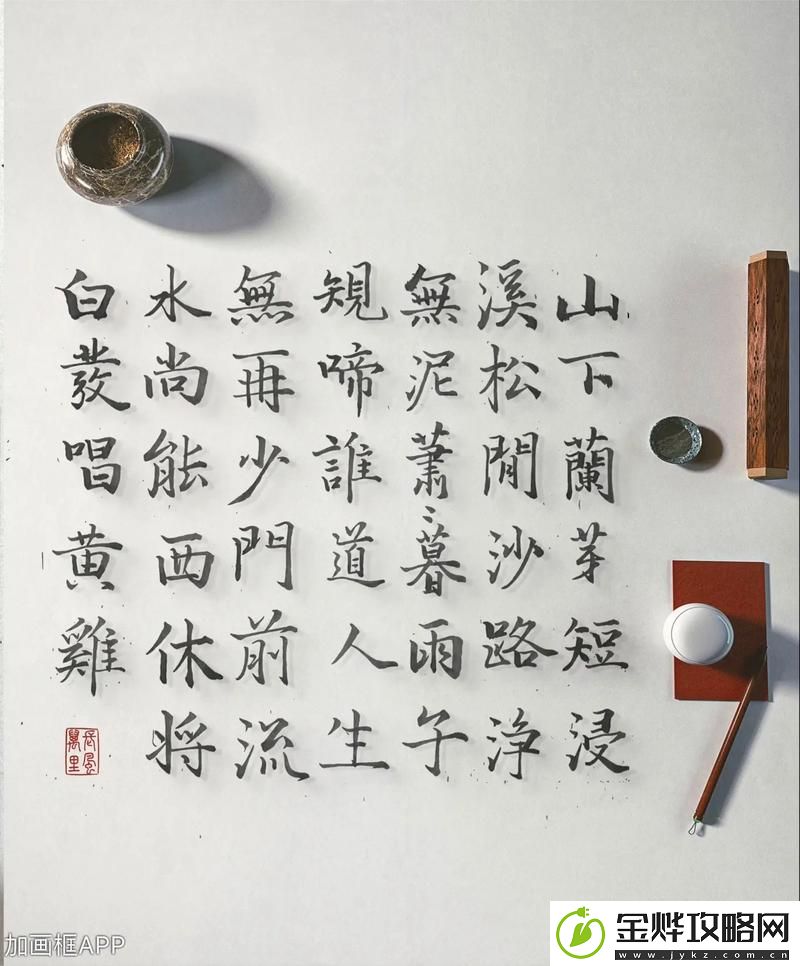 山下蘭芽短浸
溪松閒沙路浄
無泥蕭〻暮雨子
規啼誰道人生
無再少門前流
水尚能西休将
白發唱黄雞
長風
萬里
加画框APP
金烨攻略网
www.jykz.com.cn